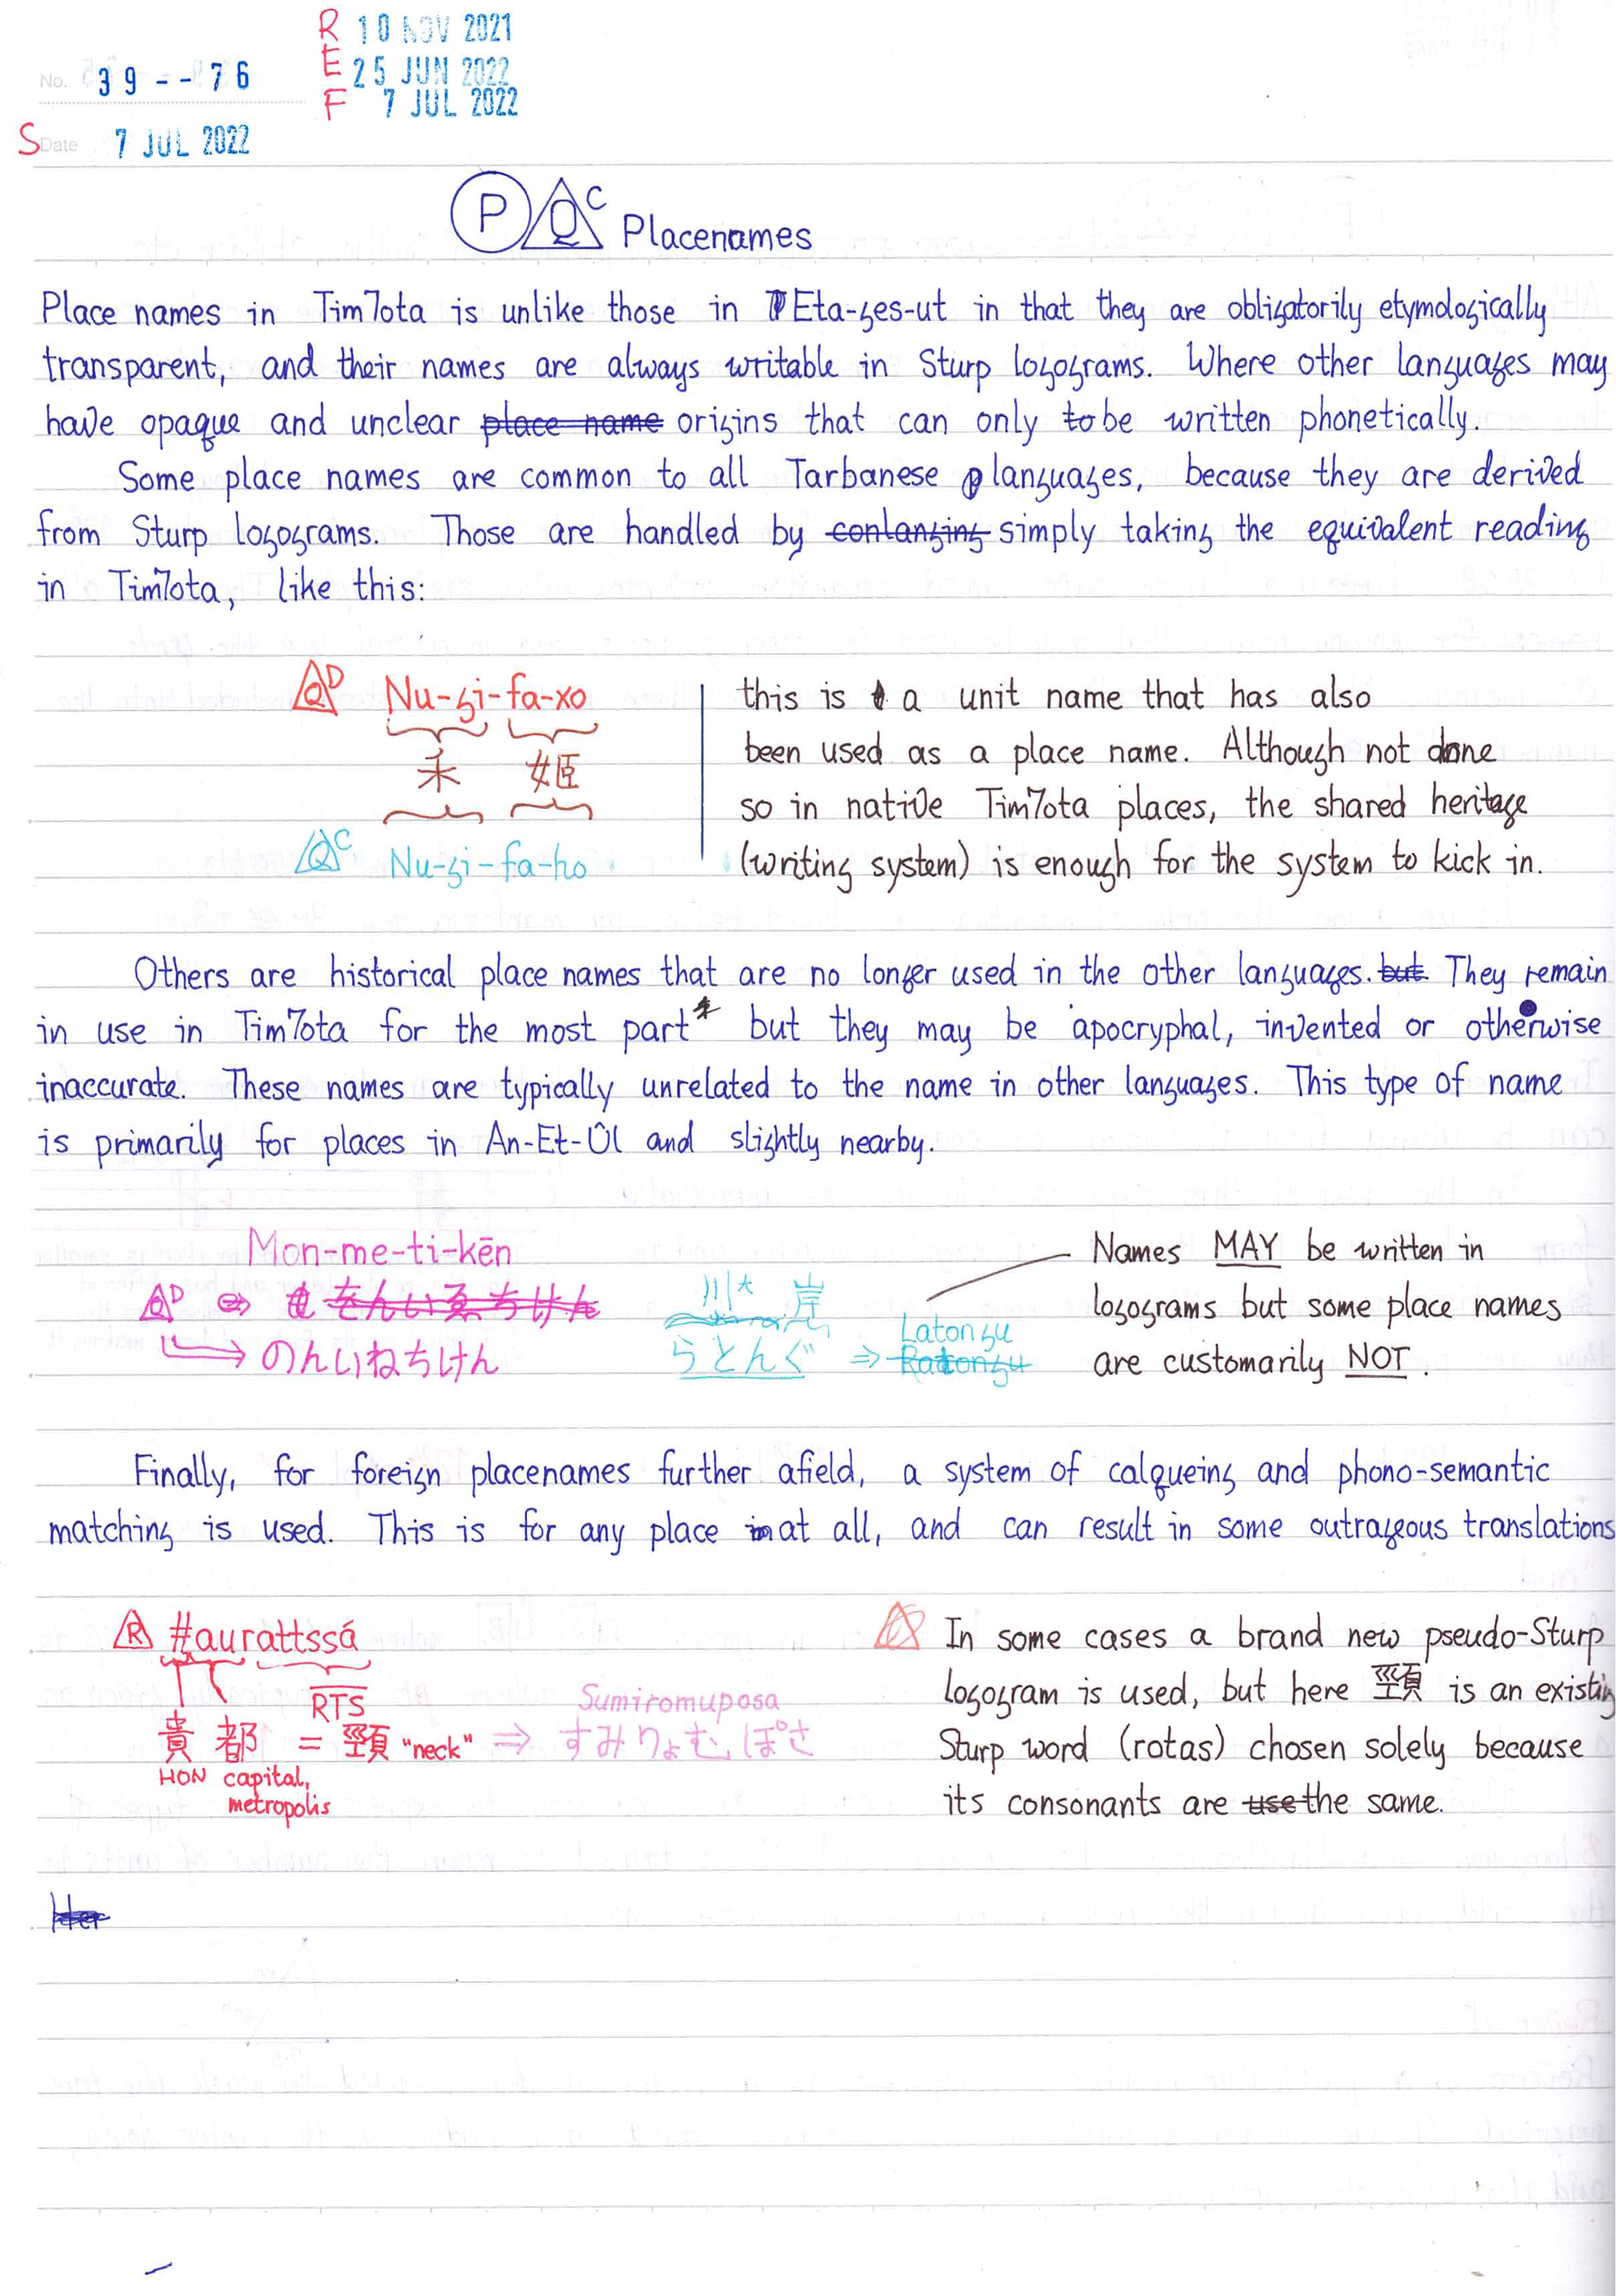 R 10 NOV 2021
No. 39--76 E 25 JUN 2022
F 7 JUL 2022
S Date 7 JUL 2022
P Q C Placenames
Place names in Tim7ota is unlike those in Eta-ges-ut in that they are obligatorily etymologically
transparent, and their names are always writable in Sturp logograms. Where other languages may
have opaque and unclear place name origins that can only to be written phonetically.
Some place names are common to all Tarbanese languages, because they are derived
from Sturp logograms. Those are handled by conlanging simply taking the equivalent reading
in Tim7ota, like this:
Q D Nu-gi-fa-xo
禾 姫
Q C Nu-gi-fa-ho
this is a unit name that has also
been used as a place name. Although not done
so in native Tim7ota places, the shared heritage
(writing system) is enough for the system to kick in.
Others are historical place names that are no longer used in the other languages. but They remain
in use in Tim7ota for the most part but they may be apocryphal, invented or otherwise
inaccurate. These names are typically unrelated to the name in other languages. This type of name
is primarily for places in An-Et-Ûl and slightly nearby.
Mon-me-ti-kēn
Q D ⇒ をんいゑちけん
のんいねちけん
川大 岸
らとんぐ ⇒ Latongu
Ratongu
Names MAY be written in
logograms but some place names
are customarily NOT.
Finally, for foreign placenames further afield, a system of calqueing and phono-semantic
matching is used. This is for any place in at all, and can result in some outrageous translations
R #aurattssá
RTS
貴 都 = 頸 "neck" ⇒ すみりょむぽさ
Sumiromuposa
HON capital,
metropolis
In some cases a brand new pseudo-Sturp
logogram is used, but here 頸 is an existing
Sturp word (rotas) chosen solely because
its consonants are use the same.